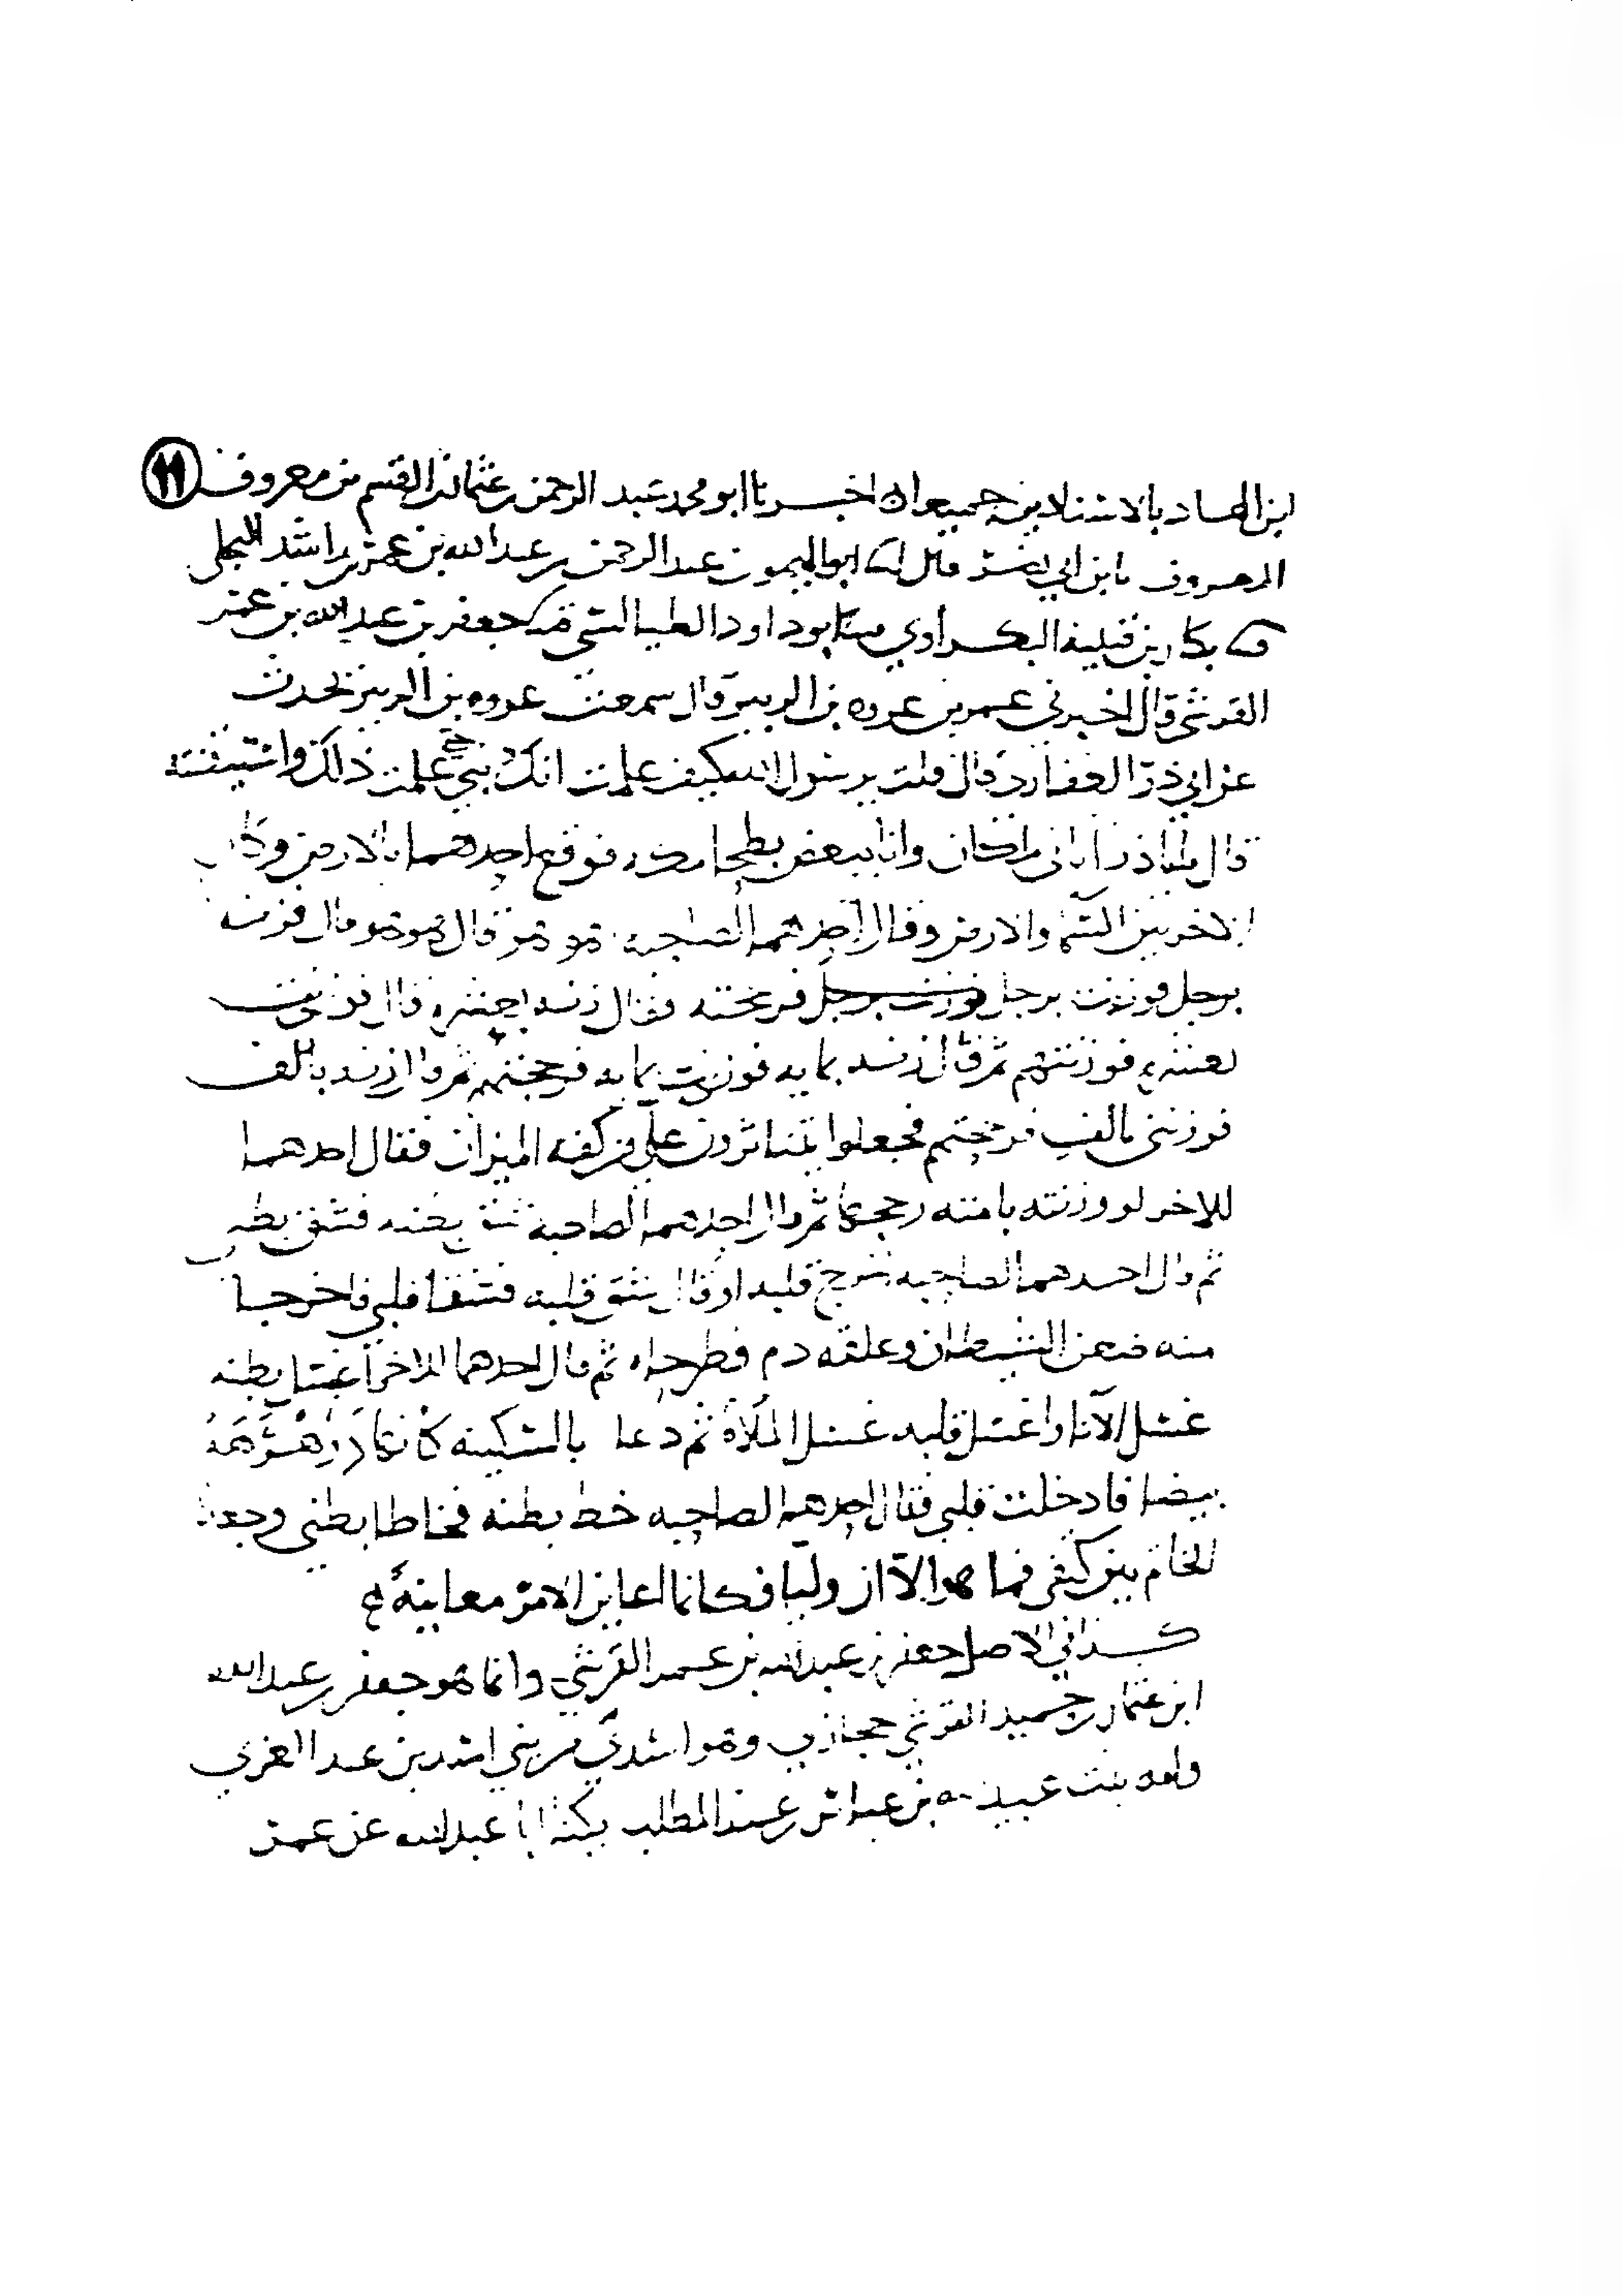 ابن العماد بالاسناد بن جميعا ان اخبرنا ابو محمد عبد الرحمن بن عثمان بن القسم بن معروف ١١
المعروف بابن ابي نصر قال ابو الميمون عبد الرحمن بن عبد الله بن عمر بن راشد البجلي
بكار بن قتيبة البكراوي ابو داود الطيالسي جعفر بن عبد الله بن عمر
القرشي قال اخبرني عمر بن عروه بن الزبير قال سمعت عروه بن الزبير يحدث
عن ابي ذر الغفاري قال قلت يرسول الله كيف علمت انك نبي علمت ذلك واستيقنته
قال يابا ذر اتاني ملكان وانا ببعض بطحا مكه فوقع احدهما بالارض وكان
الاخر بين السما والارض فقال احدهما لصاحبه هو هو قال هو هو قال فزنه
برجل فوزنت برجل فوزنت برجل فرجحته فقال زنه بعشره قال فوزنت
بعشره فوزنتهم ثم قال زنه بمايه فوزنت بمايه فرجحتهم ثم قال زنه بالف
فوزنني بالف فرجحتهم فجعلوا يتناثرون علي من كفه الميزان فقال احدهما
للاخر لو وزنته بامته رجحها ثم قال احدهما لصاحبه شق بطنه فشق بطني
ثم قال احدهما لصاحبه قلبه او قال شق قلبه فشق قلبي فاخرج
منه مغمز الشيطان وعلقه دم فطرحاه ثم قال احدهما للاخر اغسل بطنه
غسل الانا واغسل قلبه غسل الملاة ثم دعا بالسكينه كانها
بيضا فادخلت قلبي فقال احدهما لصاحبه خط بطنه فخاطا بطني وجعلا
الخاتم بين كتفي فما هو الا ان وليا فكانما اعاين الامر معاينة
كذا في الاصل جعفر بن عبد الله بن عمر القرشي وانما هو جعفر بن عبد الله
ابن عثمان بن حميد القرشي حجازي وهو اسدي من بني اسد بن عبد العزي
وامه بنت عبيد الله بن عباس بن عبد المطلب يكنا ابا عبد الله عن عمر